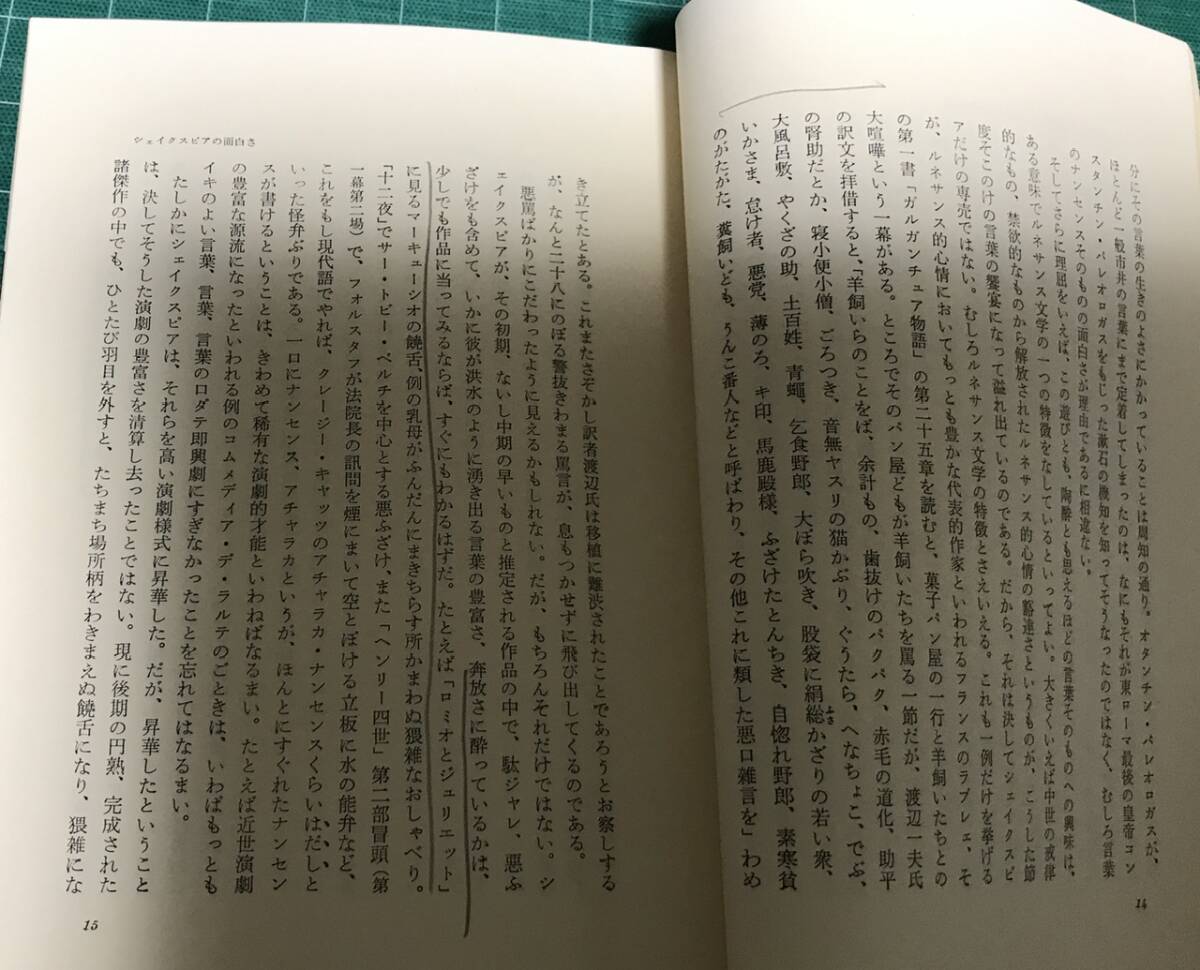 分にその言葉の生きのよさにかかっていることは周知の通り。オタンチン・パレオロガスが、
ほとんど一般市井の言葉にまで定着してしまったのは、なにもそれが東ローマ最後の皇帝コン
スタンチン・パレオロガスをもじった漱石の機知を知ってそうなったのではなく、むしろ言葉
のナンセンスそのものの面白さが理由であるに相違ない。
そしてさらに理屈をいえば、この遊びとも、陶酔とも思えるほどの言葉そのものへの興味は、
ある意味でルネサンス文学の一つの特徴をなしているといってよい。大きくいえば中世の戒律
的なもの、禁欲的なものから解放されたルネサンス的心情の豁達さというものが、こうした節
度そこのけの言葉の饗宴になって溢れ出ているのである。だから、それは決してシェイクスピ
アだけの専売ではない。むしろルネサンス文学の特徴とさえいえる。これも一例だけを挙げる
が、ルネサンス的心情においてもっとも豊かな代表的作家といわれるフランスのラブレェ、そ
の第一書「ガルガンチュア物語」の第二十五章を読むと、菓子パン屋の一行と羊飼いたちとの
大喧嘩という一幕がある。ところでそのパン屋どもが羊飼いたちを罵る一節だが、渡辺一夫氏
の訳文を拝借すると、「羊飼いらのことをば、余計もの、歯抜けのパクパク、赤毛の道化、助平
の腎助だとか、寝小便小僧、ごろつき、音無ヤスリの猫かぶり、ぐうたら、へなちょこ、でぶ、
大風呂敷、やくざの助、土百姓、青蠅、乞食野郎、大ぼら吹き、股袋に絹総かざりの若い衆、
ふさ
いかさま、怠け者、悪党、薄のろ、キ印、馬鹿殿様、ふざけたとんちき、自惚れ野郎、素寒貧
のがたがた、糞飼いども、うんこ番人などと呼ばわり、その他これに類した悪口雑言を」わめ
14
シェイクスピアの面白さ
き立てたとある。これまたさぞかし訳者渡辺氏は移植に難渋されたことであろうとお察しする
が、なんと二十八にのぼる警抜きわまる罵言が、息もつかせずに飛び出してくるのである。
悪罵ばかりにこだわったように見えるかもしれない。だが、もちろんそれだけではない。シ
ェイクスピアが、その初期、ないし中期の早いものと推定される作品の中で、駄ジャレ、悪ふ
ざけをも含めて、いかに彼が洪水のように湧き出る言葉の豊富さ、奔放さに酔っているかは、
少しでも作品に当ってみるならば、すぐにもわかるはずだ。たとえば「ロミオとジュリエット」
に見るマーキューシオの饒舌、例の乳母がふんだんにまきちらす所かまわぬ猥雑なおしゃべり。
「十二夜」でサー・トビー・ベルチを中心とする悪ふざけ、また「ヘンリー四世」第二部冒頭（第
一幕第二場）で、フォルスタフが法院長の訊問を煙にまいて空とぼける立板に水の能弁など、
これをもし現代語でやれば、クレージー・キャッツのアチャラカ・ナンセンスくらいはだしと
いった怪弁ぶりである。一口にナンセンス、アチャラカというが、ほんとにすぐれたナンセン
スが書けるということは、きわめて稀有な演劇的才能といわねばなるまい。たとえば近世演劇
の豊富な源流になったといわれる例のコムメディア・デ・ラルテのごときは、いわばもっとも
イキのよい言葉、言葉、言葉のロダテ即興劇にすぎなかったことを忘れてはなるまい。
たしかにシェイクスピアは、それらを高い演劇様式に昇華した。だが、昇華したということ
は、決してそうした演劇の豊富さを清算し去ったことではない。現に後期の円熟、完成された
諸傑作の中でも、ひとたび羽目を外すと、たちまち場所柄をわきまえぬ饒舌になり、猥雑にな
15